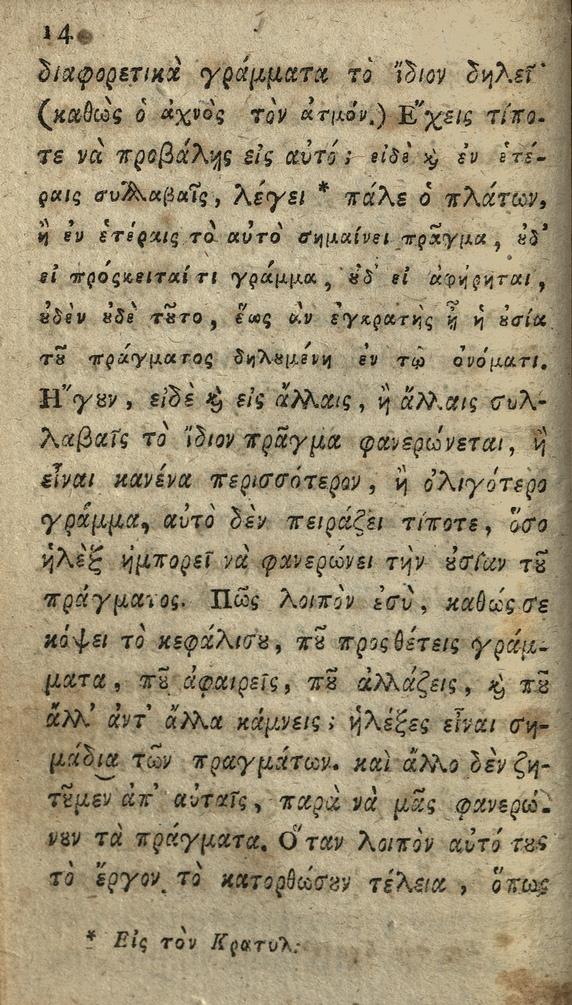 14
διαφορετικὰ γράμματα τὸ ἴδιον δηλεῖ
(καθὼς ὁ ἀχνὸς τὸν ἀτμόν.) Ἔχεις τίπο-
τε νὰ προβάλῃς εἰς αὐτό; εἰδὲ ϗ ἐν ἑτέ-
ραις συλλαβαῖς, λέγει * πάλε ὁ πλάτων,
ἢ ἐν ἑτέραις τὸ αὐτὸ σημαίνει πρᾶγμα, ȣδ'
εἰ πρόςκειταί τι γράμμα, ȣδ' εἰ ἀφῄρηται,
ȣδὲν ȣδὲ τȣ͂το, ἕως ἂν ἐγκρατὴς ᾖ ἡ ȣσία
τȣ͂ πράγματος δηλȣμένη ἐν τῷ ὀνόματι.
Ἤγȣν, εἰδὲ ϗ εἰς ἄλλαις, ἢ ἄλλαις συλ-
λαβαῖς τὸ ἴδιον πρᾶγμα φανερώνεται, ἢ
εἶναι κανένα περισσότερον, ἢ ὀλιγότερο
γράμμα, αὐτὸ δὲν πειράζει τίποτε, ὅσο
ἡλὲξ ἠμπορεῖ νὰ φανερώνει τὴν ȣσίαν τȣ͂
πράγματος. Πῶς λοιπὸν ἐσὺ, καθώς σε
κόψει τὸ κεφάλισȣ, πȣ͂ προςθέτεις γράμ-
ματα, πȣ͂ ἀφαιρεῖς, πȣ͂ ἀλλάζεις, ϗ πȣ͂
ἄλλ' ἀντ' ἄλλα κάμνεις; ἡλέξες εἶναι ση-
μάδια τῶν πραγμάτων. καὶ ἄλλο δὲν ζη-
τȣ͂μεν ἀπ' αὐταῖς, παρὰ νὰ μᾶς φανερώ-
νȣν τὰ πράγματα. Ὅταν λοιπὸν αὐτό τȣς
τὸ ἔργον τὸ κατορθώσȣν τέλεια, ὅπως
* Εἰς τὸν Κρατυλ.